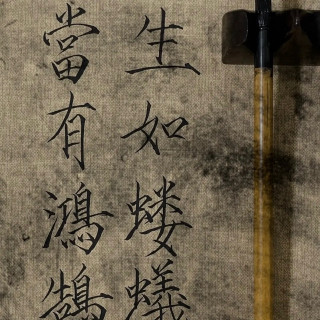 生如蝼蟻
當有鴻鵠